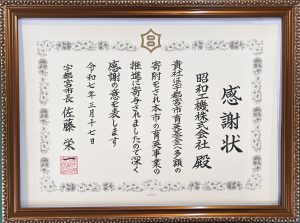 感謝状
昭和工機株式会社 殿
貴社は宇都宮市育英基金へ多額の
寄附をされ本市の育英事業の
推進に寄与されましたので深く
感謝の意を表します
令和七年三月十七日
宇都宮市長 佐藤栄一